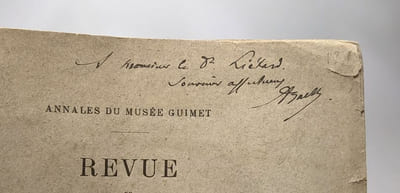 A monsieur le Dr Liétard.
Souvenir affectueux
ANNALES DU MUSÉE GUIMET
REVUE